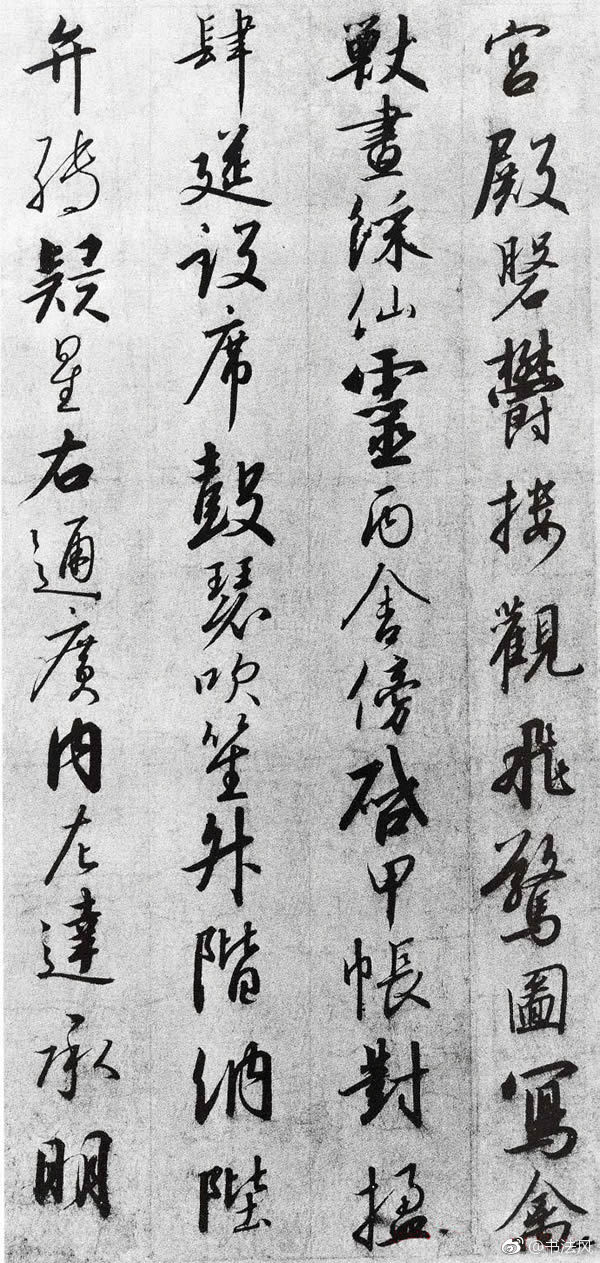 宮殿磐鬱樓觀飛驚圖寫禽
獸畫綵仙靈丙舍傍啓甲帳對楹
肆筵設席鼓瑟吹笙升階納陛
弁轉疑星右通廣內左達承明
@书法网